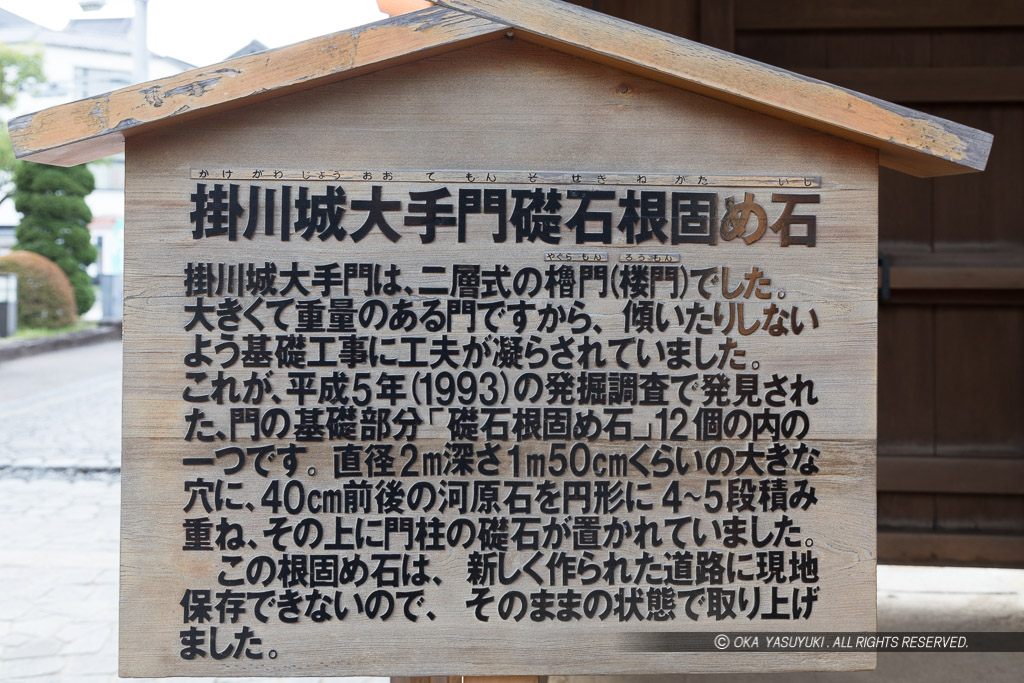 かけがわじょうおおてもんそせきねがたいし
掛川城大手門礎石根固め石
やぐらもん ろうもん
掛川城大手門は、二層式の櫓門(楼門)でした。
大きくて重量のある門ですから、傾いたりしない
よう基礎工事に工夫が凝らされていました。
これが、平成5年(1993)の発掘調査で発見され
た、門の基礎部分「礎石根固め石」12個の内の
一つです。直径2m深さ1m50cmくらいの大きな
穴に、40cm前後の河原石を円形に4~5段積み
重ね、その上に門柱の礎石が置かれていました。
この根固め石は、新しく作られた道路に現地
保存できないので、そのままの状態で取り上げ
ました。
© OKA YASUYUKI. ALL RIGHTS RESERVED.